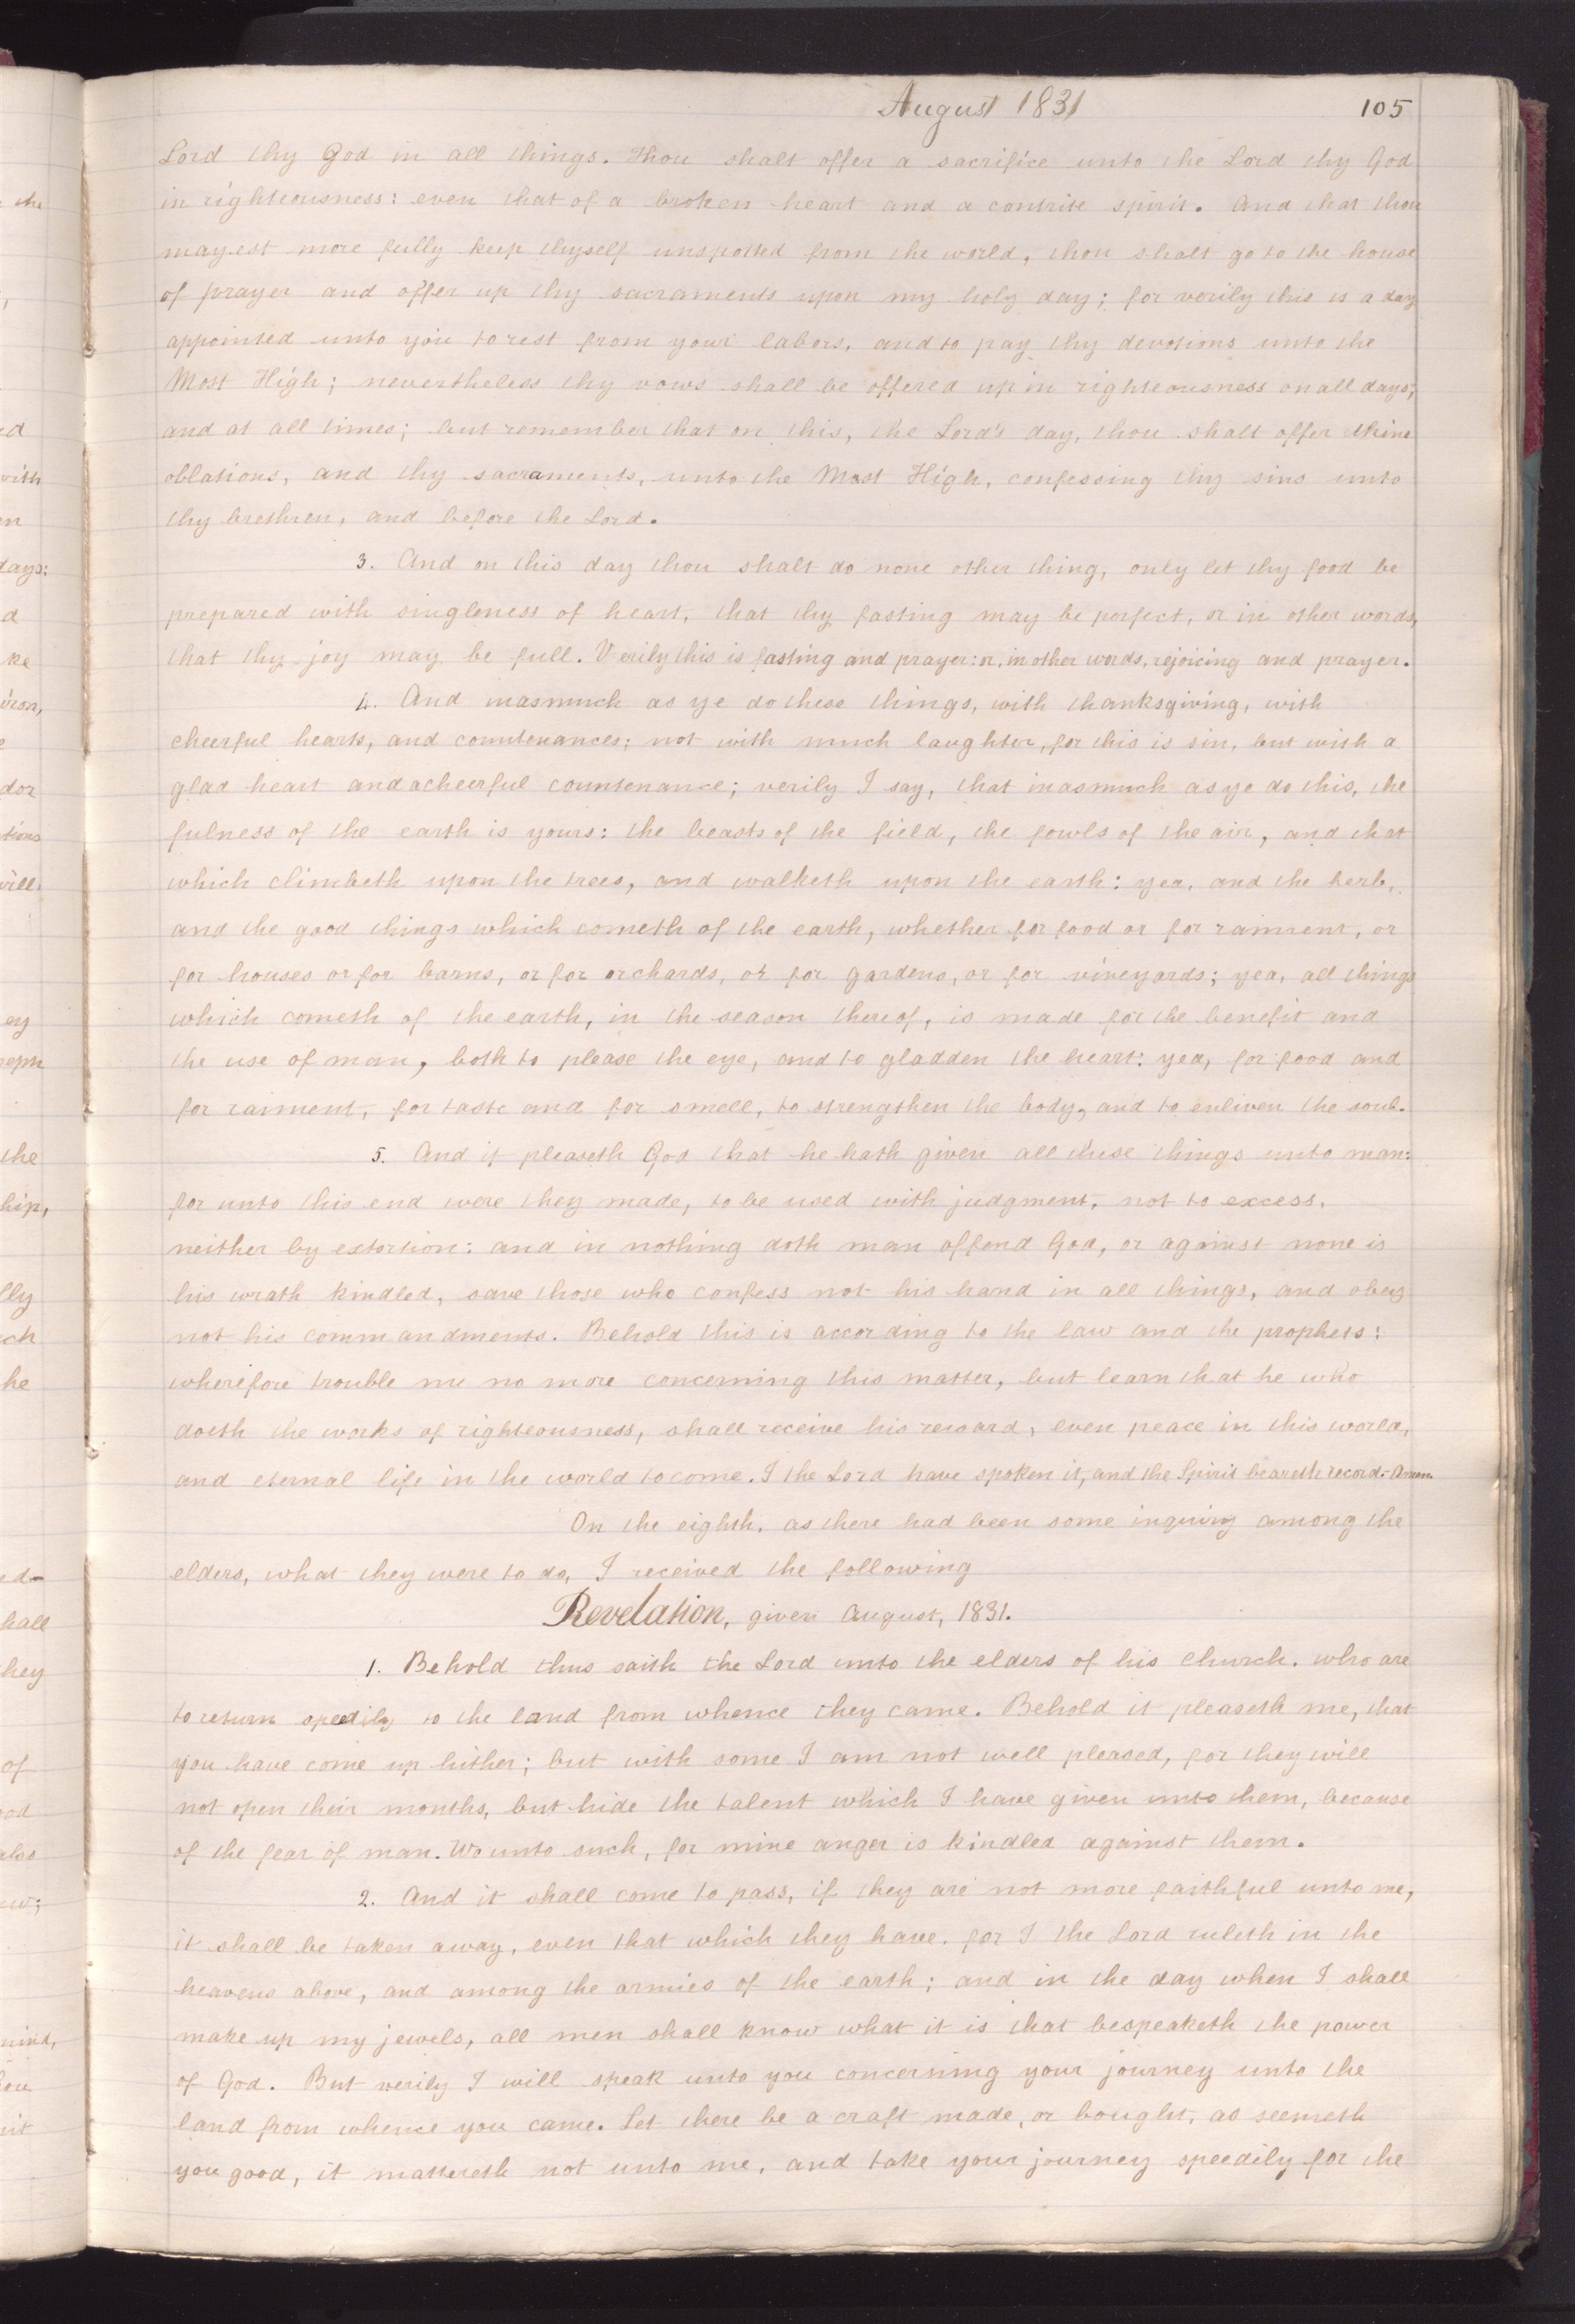 August 1831
105
Lord thy God in all things. Thou shalt offer a sacrifice unto the Lord thy God
in righteousness: even that of a broken heart and a contrite spirit. And that thou
mayest more fully keep thyself unspotted from the world, thou shalt go to the house
of prayer and offer up thy sacraments upon my holy day; for verily this is a day
appointed unto you to rest from your labors, and to pay thy devotions unto the
Most High; nevertheless thy vows shall be offered up in righteousness on all days;
and at all times; but remember that on this, the Lord's day, thou shalt offer thine
oblations, and thy sacraments, unto the Most High, confessing thy sins unto
thy brethren, and before the Lord.
3. And on this day thou shalt do none other thing, only let thy food be
prepared with singleness of heart, that thy fasting may be perfect, or in other words,
that thy joy may be full. Verily this is fasting and prayer: or, in other words, rejoicing and prayer.
4. And inasmuch as ye do these things, with thanksgiving, with
cheerful hearts, and countenances; not with much laughter, for this is sin, but with a
glad heart and a cheerful countenance; verily I say, that inasmuch as ye do this, the
fulness of the earth is yours: the beasts of the field, the fowls of the air, and that
which climbeth upon the trees, and walketh upon the earth: yea, and the herb,
and the good things which cometh of the earth, whether for food or for raiment, or
for houses or for barns, or for orchards, or for gardens, or for vineyards; yea, all things
which cometh of the earth, in the season thereof, is made for the benefit and
the use of man, both to please the eye, and to gladden the heart: yea, for food and
for raiment, for taste and for smell, to strengthen the body, and to enliven the soul.
5. And it pleaseth God that he hath given all these things unto man:
for unto this end were they made, to be used with judgment, not to excess,
neither by extortion: and in nothing doth man offend God, or against none is
his wrath kindled, save those who confess not his hand in all things, and obey
not his commandments. Behold this is according to the law and the prophets:
wherefore trouble me no more concerning this matter, but learn that he who
doeth the works of righteousness, shall receive his reward, even peace in this world,
and eternal life in the world to come. I the Lord have spoken it, and the Spirit beareth record. Amen.
On the eighth, as there had been some inquiry among the
elders, what they were to do, I received the following
Revelation, given August, 1831.
1. Behold thus saith the Lord unto the elders of his church, who are
to return speedily to the land from whence they came. Behold it pleaseth me, that
you have come up hither; but with some I am not well pleased, for they will
not open their mouths, but hide the talent which I have given unto them, because
of the fear of man. Wo unto such, for mine anger is kindled against them.
2. And it shall come to pass, if they are not more faithful unto me,
it shall be taken away, even that which they have, for I the Lord ruleth in the
heavens above, and among the armies of the earth; and in the day when I shall
make up my jewels, all men shall know what it is that bespeaketh the power
of God. But verily I will speak unto you concerning your journey unto the
land from whence you came. Let there be a craft made, or bought, as seemeth
you good, it mattereth not unto me, and take your journey speedily for the